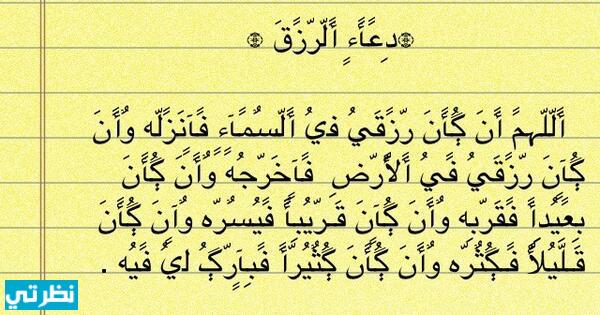 ۞دِعًأَءٍ أَلّرّزًقَ ۞
أَلّلّهمً أنَ ګُأَنَ رّزًقَيُ فيُ أَلّسٌمًأَءٍ فَأنَزًلّه وٌأنَ
ګُأَنِ رّزًقَيُ فَيُ أَلأرّضِ فَأَخَرّجٌهُ وٌأنَ ګُأنَ
بعًيُدِأَ فَقَرّبه وٌأنَ ګُأَنَ قَرّيُبأَ فَيُسٌرّه وٌأَنِ ګُأَنَ
قَلّيُلأَ فَګثُرّه وٌأنَ ګُأَنَ ګثُيُرّأَ فَبأَرّګ ليُ فَيُه .
نظرتي